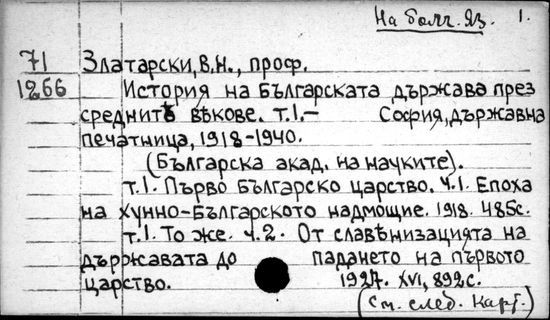 На болг. яз. 1.
71 Златарски, В.Н., проф.
1266 История на Българската държава през
среднитѣ вѣкове. т.1.- София, държавна
печатница, 1918-1940.
(Българска акад. на науките).
т.1. Първо българско царство. ч.1. Епоха
на хунно-Българското надмощие. 1918. 485с.
т.1. То же. ч.2. От славѣнизацията на
държавата до падането на първото
царство. 1927. XVI, 892с.
(См. след. карт.)